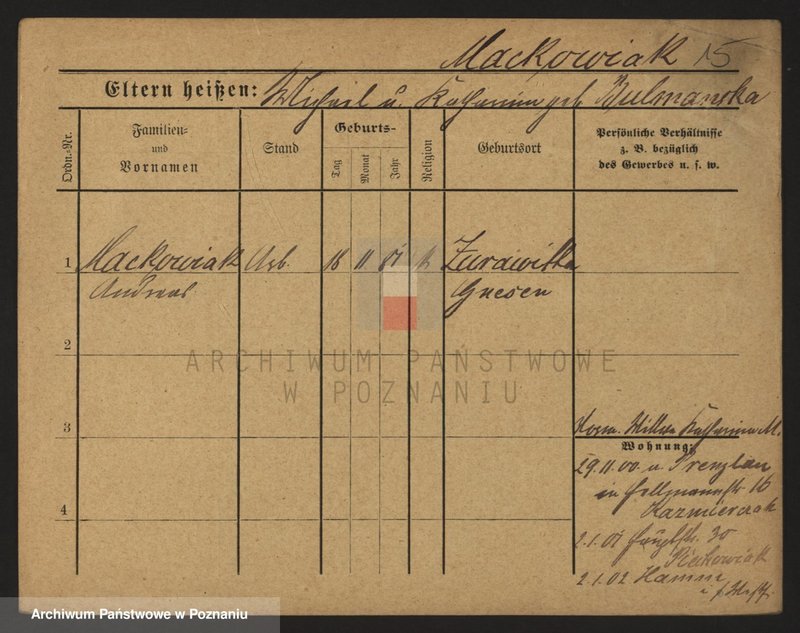 Mackowiak 15
Eltern heißen: Michael u. Katharina geb. Bulmanska
Ordn.-Nr.
Familien-
und
Vornamen
Stand
Geburts-
Tag
Monat
Jahr
Religion
Geburtsort
Persönliche Verhältnisse
z. B. bezüglich
des Gewerbes u. s. w.
1 Mackowiak Arb. 18 11 81 k Zurawitka
Andreas Gnesen
2
ARCHIWUM PAŃSTWOWE
W POZNANIU
3
Katharina M.
Wohnung:
29.11.00. u Prenzlau
in Hellmannstr 16
Kazmierzak
2.1.01 Hauptstr. 30
Piechowiak
2.1.02 Hamm
i./Westf.
4
Archiwum Państwowe w Poznaniu